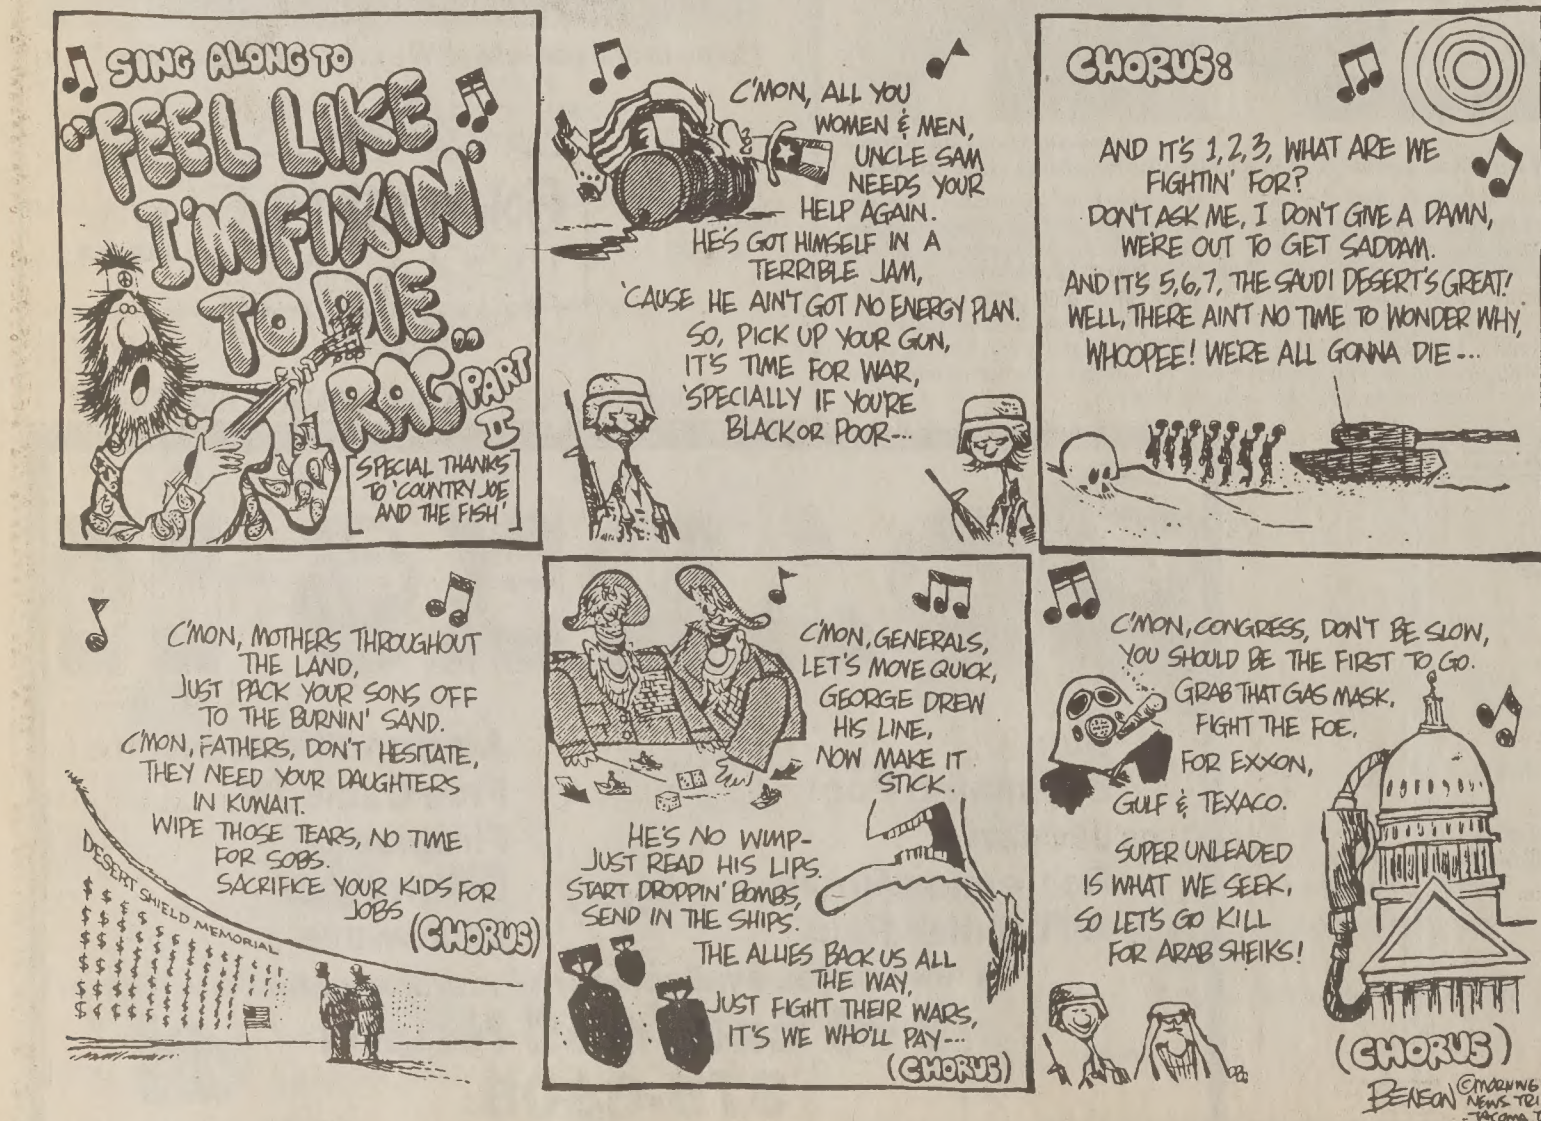 SING ALONG TO
"FEEL LIKE
I'M FIXIN'
TO DIE
RAG"
PART
II
[SPECIAL THANKS
TO 'COUNTRY JOE
AND THE FISH']
C'MON, ALL YOU
WOMEN & MEN,
UNCLE SAM
NEEDS YOUR
HELP AGAIN.
HE'S GOT HIMSELF IN A
TERRIBLE JAM,
'CAUSE HE AIN'T GOT NO ENERGY PLAN.
SO, PICK UP YOUR GUN,
IT'S TIME FOR WAR,
'SPECIALLY IF YOU'RE
BLACK OR POOR---
CHORUS:
AND IT'S 1,2,3, WHAT ARE WE
FIGHTIN' FOR?
DON'T ASK ME, I DON'T GIVE A DAMN,
WE'RE OUT TO GET SADDAM.
AND IT'S 5,6,7, THE SAUDI DESERT'S GREAT!
WELL, THERE AIN'T NO TIME TO WONDER WHY,
WHOOPEE! WE'RE ALL GONNA DIE---
C'MON, MOTHERS THROUGHOUT
THE LAND,
JUST PACK YOUR SONS OFF
TO THE BURNIN' SAND.
C'MON, FATHERS, DON'T HESITATE,
THEY NEED YOUR DAUGHTERS
IN KUWAIT.
WIPE THOSE TEARS, NO TIME
FOR SOBS.
SACRIFICE YOUR KIDS FOR
JOBS
(CHORUS)
DESERT SHIELD MEMORIAL
C'MON, GENERALS,
LET'S MOVE QUICK,
GEORGE DREW
HIS LINE,
NOW MAKE IT
STICK.
HE'S NO WIMP-
JUST READ HIS LIPS.
START DROPPIN' BOMBS,
SEND IN THE SHIPS.
THE ALLIES BACK US ALL
THE WAY,
JUST FIGHT THEIR WARS,
IT'S WE WHO'LL PAY---
(CHORUS)
C'MON, CONGRESS, DON'T BE SLOW,
YOU SHOULD BE THE FIRST TO GO.
GRAB THAT GAS MASK,
FIGHT THE FOE,
FOR EXXON,
GULF & TEXACO.
SUPER UNLEADED
IS WHAT WE SEEK,
SO LET'S GO KILL
FOR ARAB SHEIKS!
(CHORUS)
BENSON
©MORNING
NEWS TRI
-TACOMA